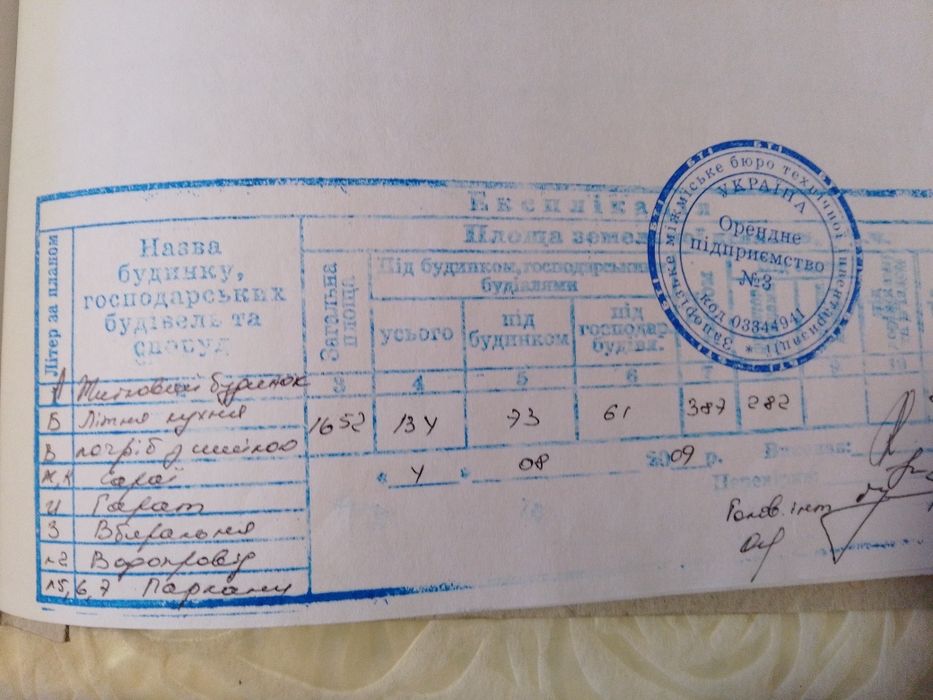 Експлікація
Площа земельної
Літер за планом
Назва
будинку,
господарських
будівель та
споруд
Загальна
площа
Під будинком, господарськими
будівлями
усього
під
будинком
під
господар.
будівл.
3 4 5 6
1652 134 73 61 387 282
А Житловий будинок
Б Літня кухня
В погріб з шийкою
Ж, К Сараї
И Гараж
З Вбиральня
№2 Водопровід
№5,6,7 Паркани
« 4 » 08 2009 р.
Виконав:
Перевірив:
Голов. інж
БТІ
Запорізьке міжміське бюро технічної інвентаризації *
УКРАЇНА
Орендне
підприємство
№3
код 03344941